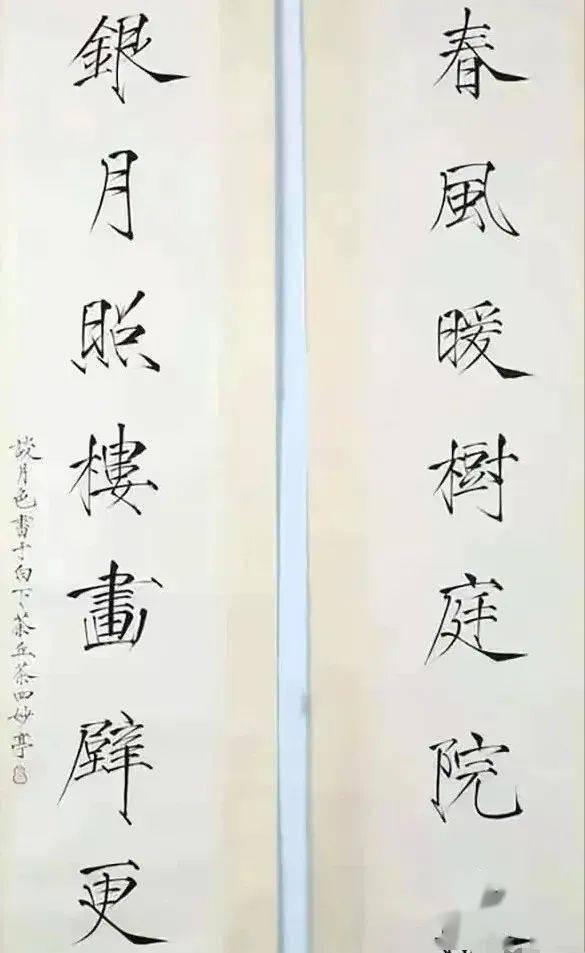 春風暖樹庭院
銀月照樓畫辟更
談月色書于白下茶丘茶四妙亭